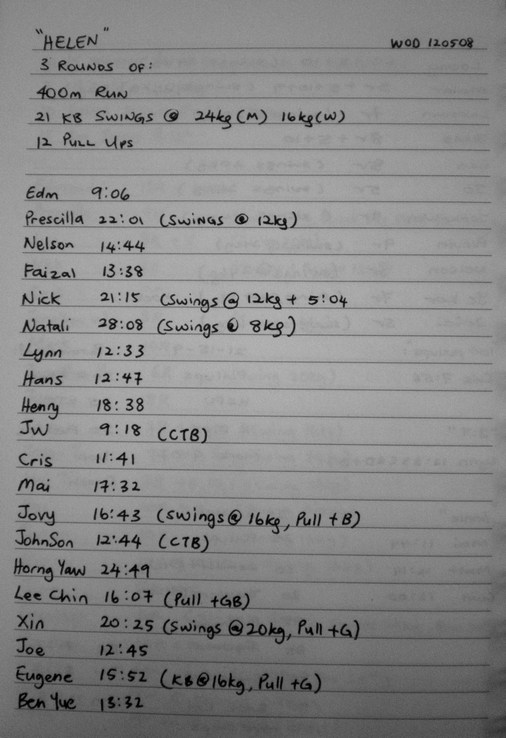 "HELEN" WOD 120508
3 ROUNDS OF:
400m RUN
21 KB SWINGS @ 24kg (M) 16kg (W)
12 PULL UPS
Edm 9:06
Prescilla 22:01 (SWINGS @ 12kg)
Nelson 14:44
Faizal 13:38
Nick 21:15 (Swings @ 12kg + 5:04
Natali 28:08 (Swings @ 8kg)
Lynn 12:33
Hans 12:47
Henry 18:38
JW 9:18 (CTB)
Cris 11:41
Mai 17:32
Jovy 16:43 (Swings @ 16kg, Pull + B)
JohnSon 12:44 (CTB)
Horng Yaw 24:49
Lee Chin 16:07 (Pull +GB)
Xin 20:25 (Swings @ 20kg, Pull +G)
Joe 12:45
Eugene 15:52 (KB @ 16kg, Pull +G)
Ben Yue 13:32